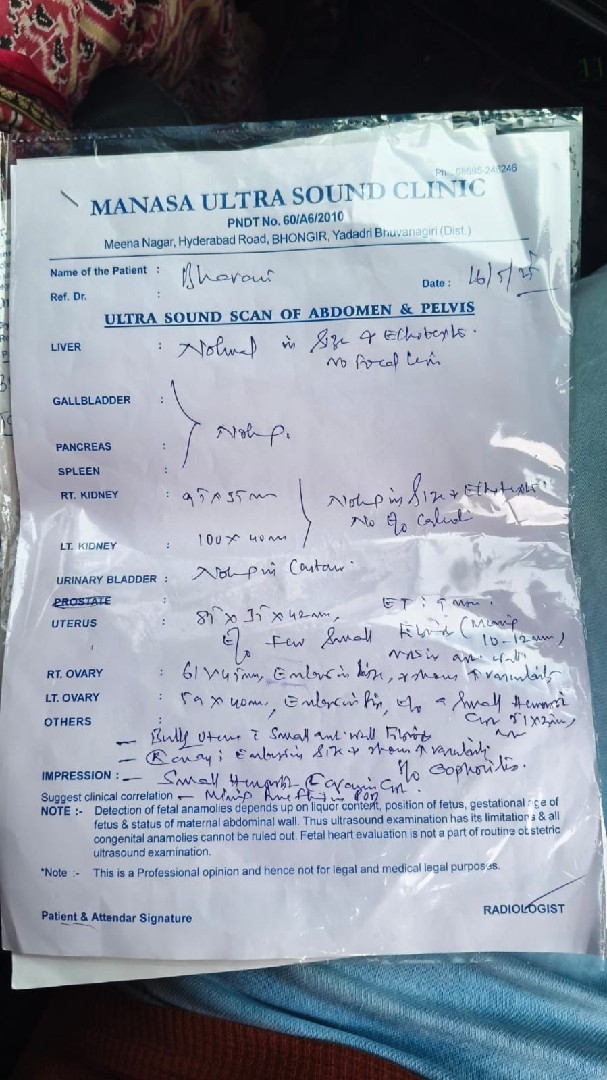 Ph : 08685-248246
MANASA ULTRA SOUND CLINIC
PNDT No. 60/A6/2010
Meena Nagar, Hyderabad Road, BHONGIR, Yadadri Bhuvanagiri (Dist.)
Name of the Patient : Bhavani
Date : 16/5/25
Ref. Dr. :
ULTRA SOUND SCAN OF ABDOMEN & PELVIS
LIVER : Normal in Size & Echotexture.
No focal lesion
GALLBLADDER :
PANCREAS :
SPLEEN :
RT. KIDNEY : 95 x 35 mm in Size & Echotexture
No e/o calculi
LT. KIDNEY : 100 x 40 mm
URINARY BLADDER : in Contour.
PROSTATE :
UTERUS : 85 x 35 x 42 mm, ET : 5 mm.
E/o Few Small Fibroids (
10-12 mm)
RT. OVARY : 61 x 45 mm, Enlarged in size, & shows ↑ vascularity
LT. OVARY : 59 x 40 mm, Enlarged in size, e/o a Small Hemorrhagic
Cyst
OTHERS :
– Bulky Uterus Small ant wall Fibroids
– Enlarged in Size & shows ↑ vascularity
Oophoritis.
IMPRESSION : – Small Hemorrhagic Ovarian Cyst.
Suggest clinical correlation –
NOTE :- Detection of fetal anamolies depends up on liquor content, position of fetus, gestational age of
fetus & status of maternal abdominal wall. Thus ultrasound examination has its limitations & all
congenital anamolies cannot be ruled out. Fetal heart evaluation is not a part of routine obstetric
ultrasound examination.
*Note :- This is a Professional opinion and hence not for legal and medical legal purposes.
Patient & Attendar Signature
RADIOLOGIST